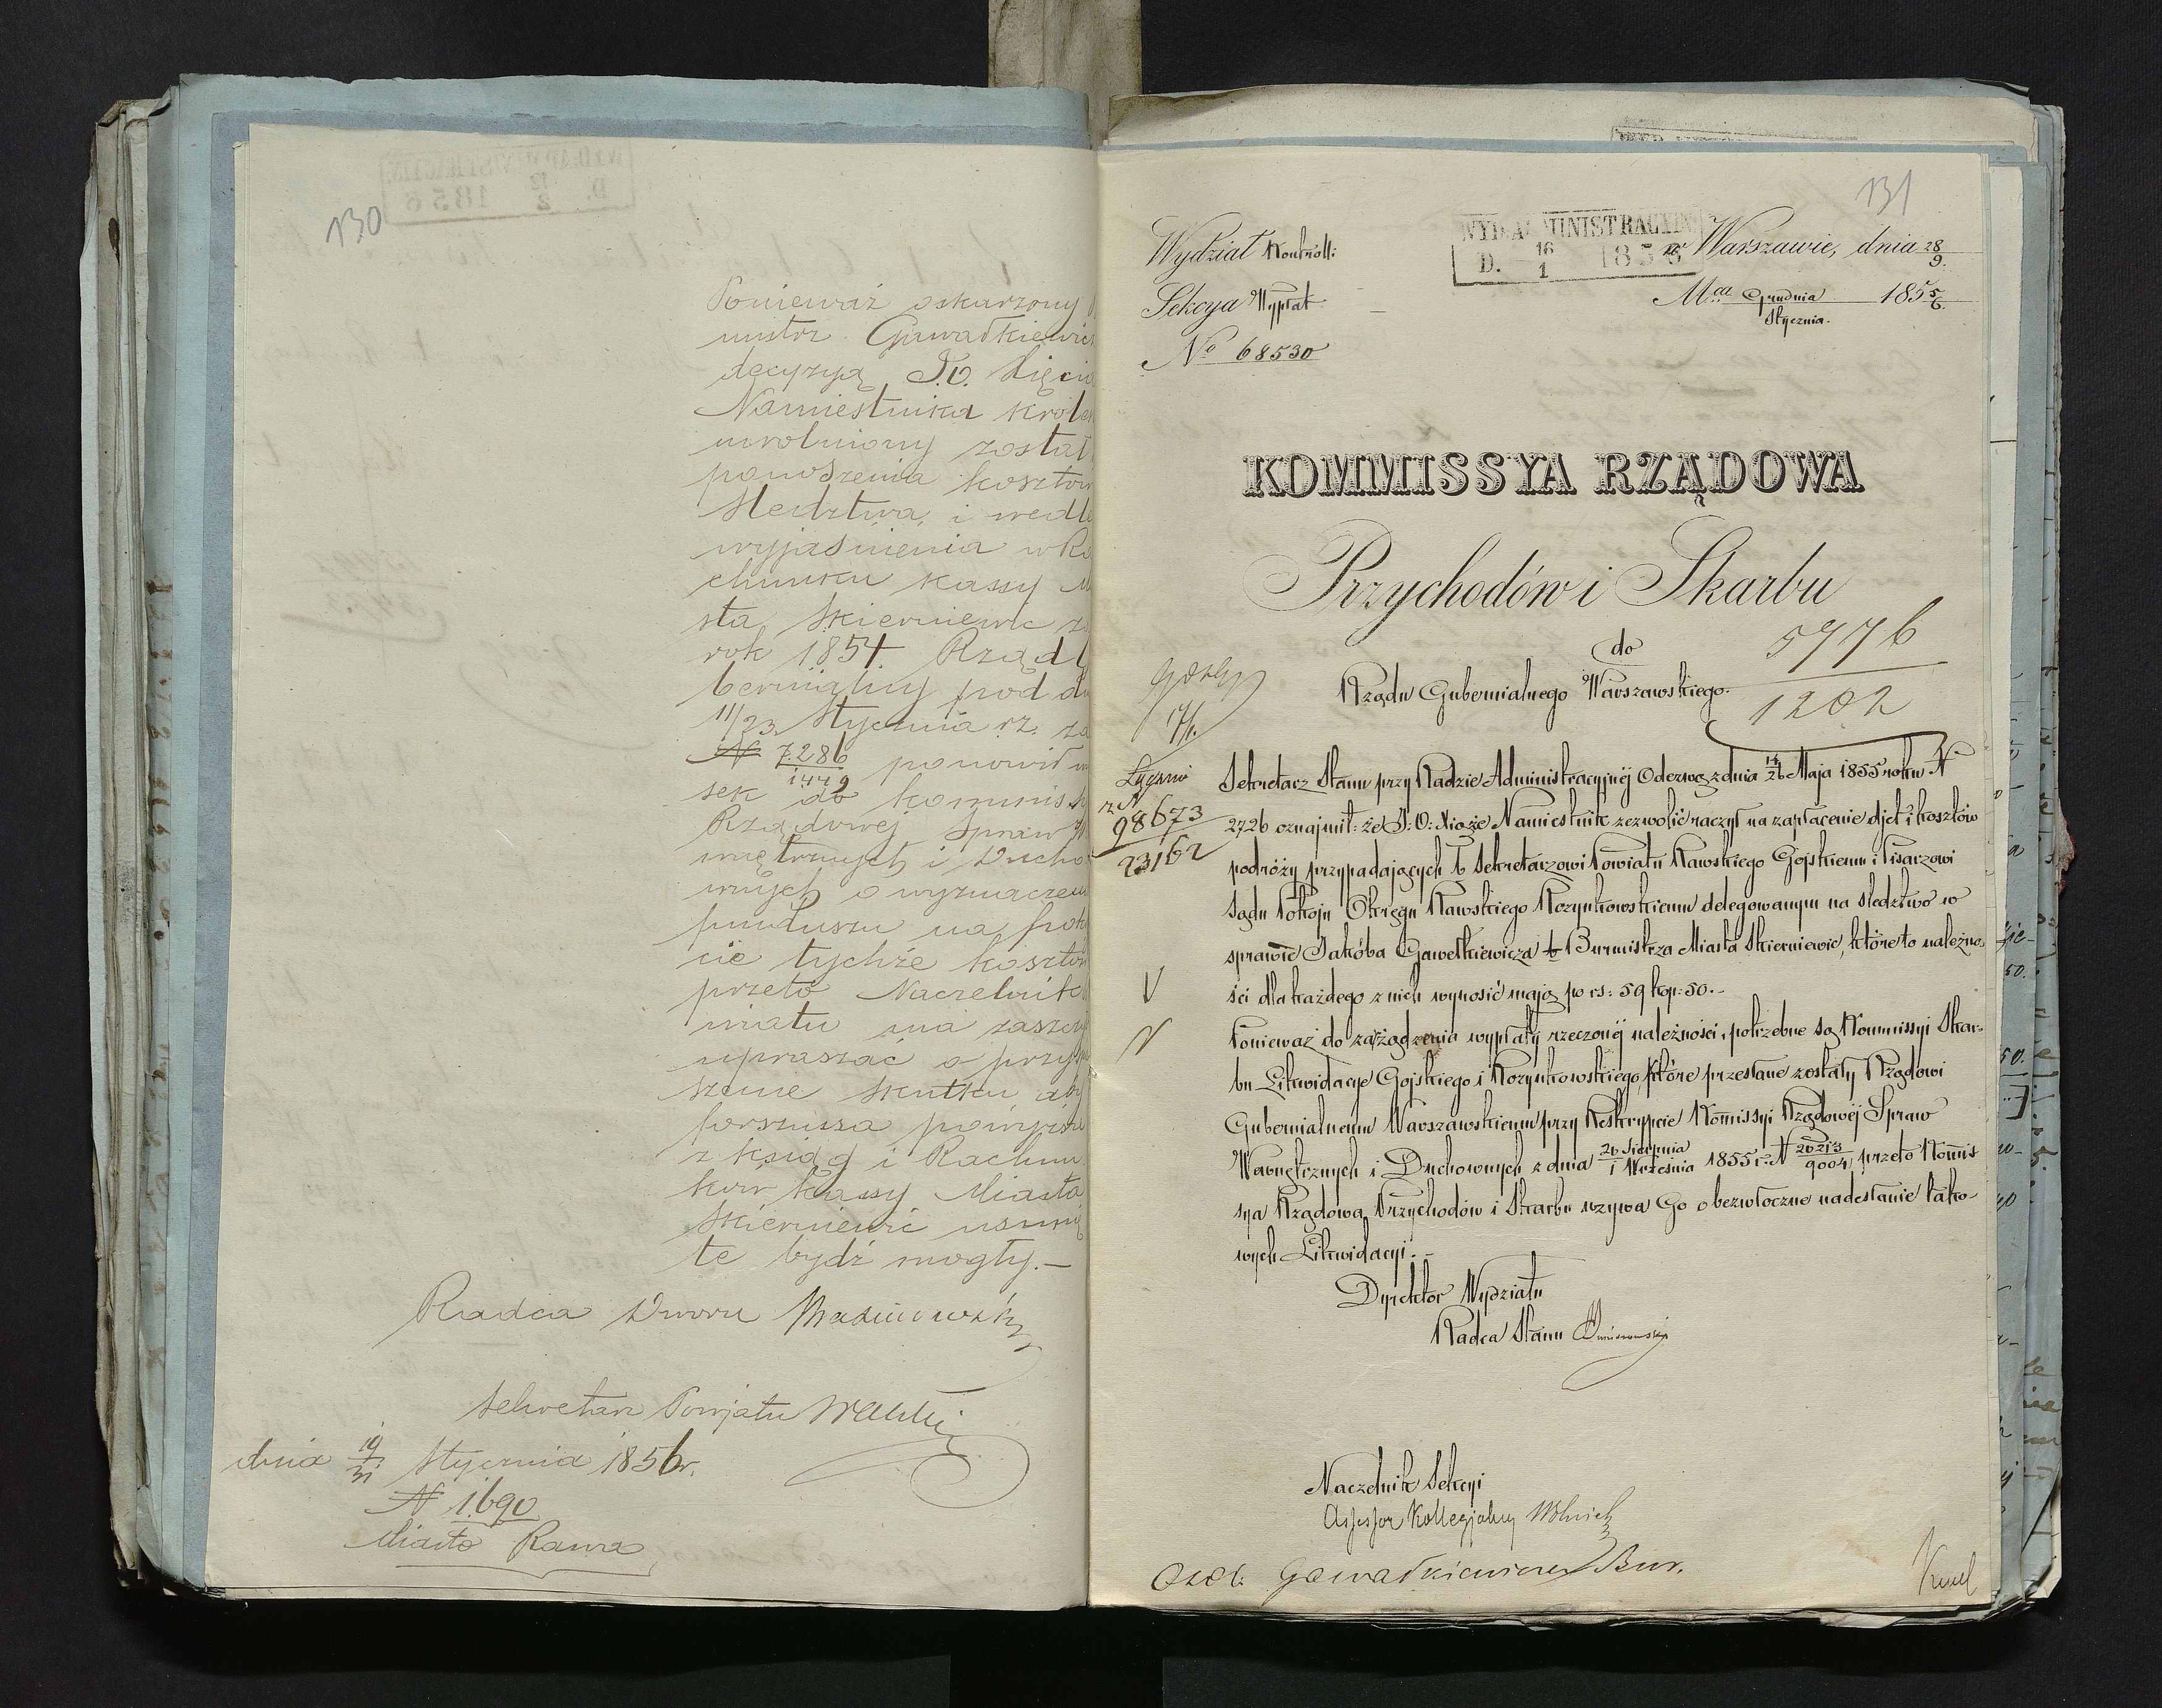 130
Ponieważ oskarzony
mistrz Gawałkiewicz
decyzyą J.O. Xięcia
Namiestnika Króle
uwolniony został
ponoszenia kosztów
śledztwa, i wedle
wyjaśnienia w Ra
chunku kassy Mia
sta Skierniewic za
rok 1854. Rząd Gu
bernialny pod dn
11/23 Stycznia r.z. za
N 7286/1449 ponowił
sek do Kommissyi
Rządowej Spraw We
wnętrznych i Ducho
wnych o wyznaczenie
funduszu na pokry
cie tychże kosztów
przeto Naczelnik Po
wiatu ma zaszczyt
upraszać o przyspie
szenie skutku, aby
forszusa powyższe
z ksiąg i Rachun
ków kassy Miasta
Skierniewic usunię
te bydź mogły.—
Radca Dworu
Sekretarz Powiatu
dnia 19/31 Stycznia 1856 r.
N 1690
Miasto Rawa
131
WYD. ADMINISTRACYJN
D. 16/1 1856
Wydział Kontroll:
w Warszawie, dnia 28/9.
Sekcya Wypłat
Mca Grudnia/Stycznia. 1855/6.
No 68530
KOMMISSYA RZĄDOWA
Przychodów i Skarbu
do
Rządu Gubernialnego Warszawskiego.
5776/1202
17/1.
Łącznie
z N
98673/23162
Sekretarz Stanu przy Radzie Administracyjnéj Odezwą z dnia 14/26 Maja 1855 roku N
2726 oznajmił: że J: O: Xiąże Namiestnik zezwolić raczył na zapłacenie djet i kosztów
podróży przypadających b. Sekretarzowi Powiatu Rawskiego Gojskiemu i Pisarzowi
Sądu Pokoju Okręgu Rawskiego Rozynkowskiemu delegowanym na śledztwo w
sprawie Jakóba Gawełkiewicza b. Burmistrza Miasta Skierniewic, które to należno
ści dla każdego z nich wynosić mają po rs: 59 kop: 50.—
Ponieważ do zarządzenia wypłaty rzeczonéj należności, potrzebne są Kommissyi Skar-
bu Likwidacye Gojskiego i Rozynkowskiego, które przesłane zostały Rządowi
Gubernialnemu Warszawskiemu przy Reskrypcie Kommissyi Rządowéj Spraw
Wewnętrznych i Duchownych z dnia 20 Sierpnia/1 Września 1855 r. N 20213/9004, przeto Kommis
sya Rządowa Przychodów i Skarbu wzywa Go o bezwłoczne nadesłanie tako-
wych Likwidacyi.—
Dyrektor Wydziału
Radca Stanu
Naczelnik Sekcyi
Assessor Kollegjalny
Osob: Gawałkiewicza Bur.